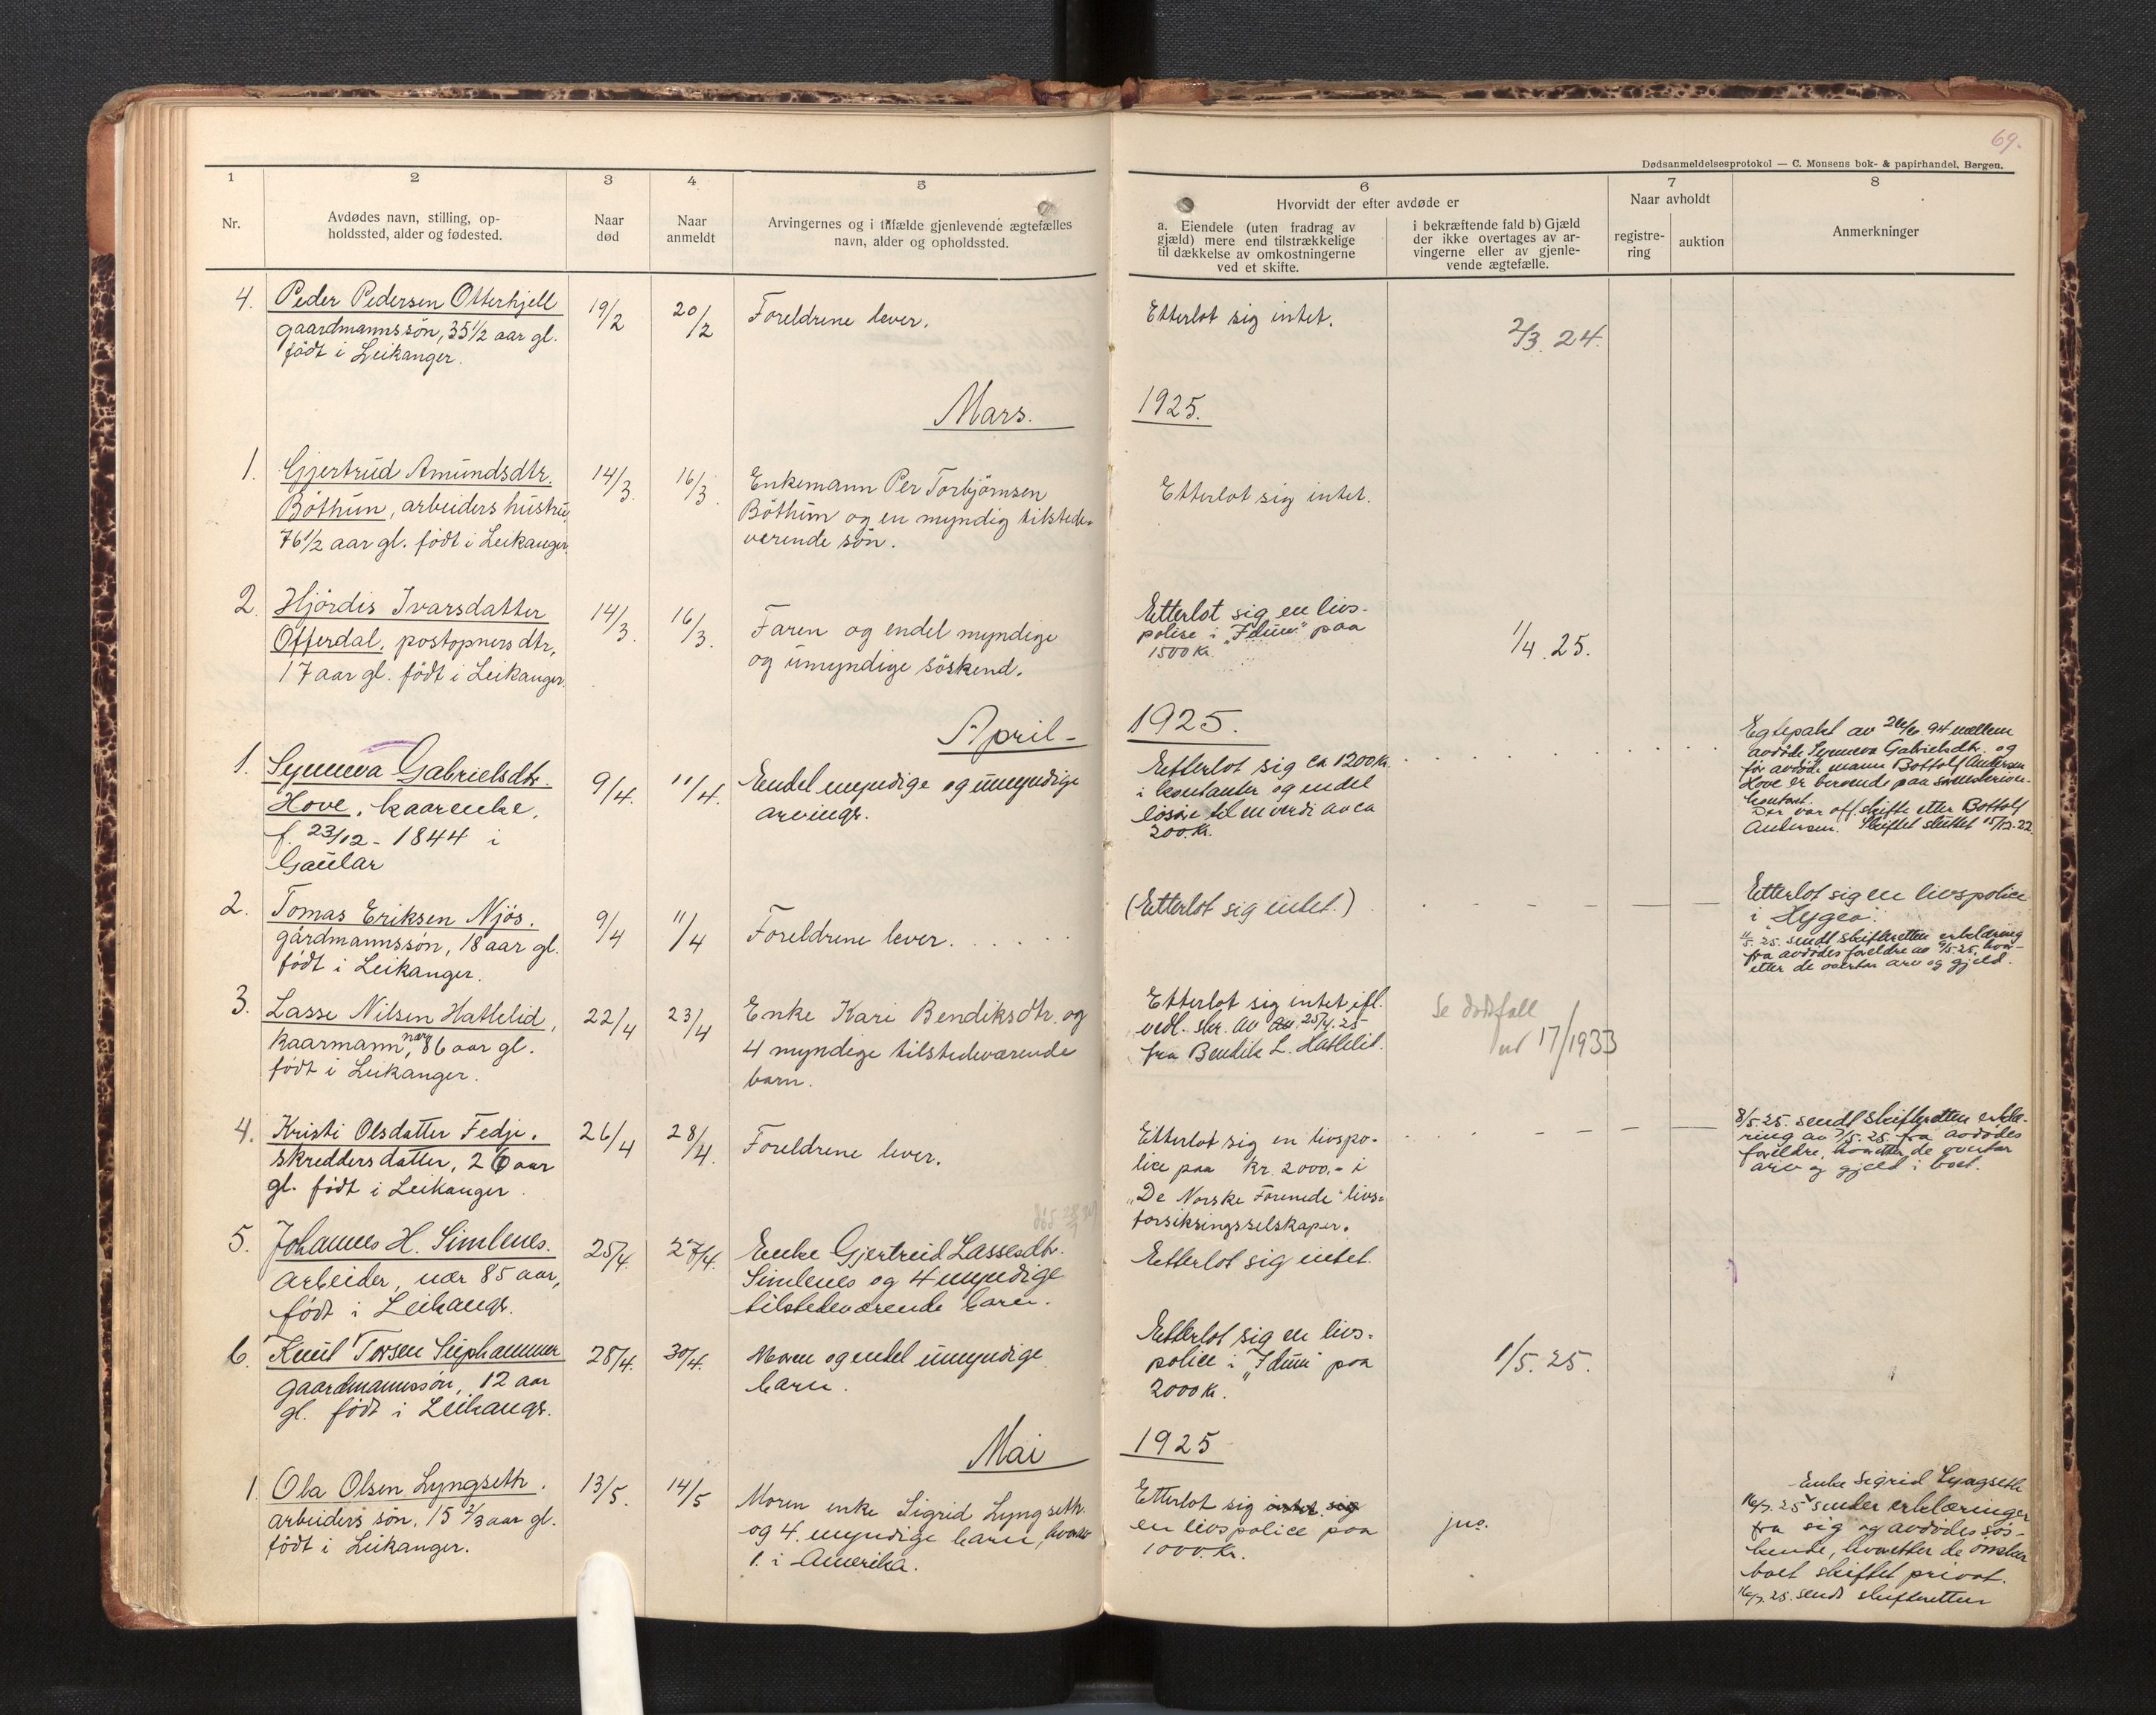 69.
Dødsanmeldelsesprotokol — C. Monsens bok- & papirhandel, Bergen.
1 2 3 4 5 6 7 8
Nr.
Avdødes navn, stilling, op-
holdssted, alder og fødested.
Naar
død
Naar
anmeldt
Arvingernes og i tilfælde gjenlevende ægtefælles
navn, alder og opholdssted.
Hvorvidt der efter avdøde er
a. Eiendele (uten fradrag av
gjæld) mere end tilstrækkelige
til dækkelse av omkostningerne
ved et skifte.
i bekræftende fald b) Gjæld
der ikke overtages av ar-
vingerne eller av gjenle-
vende ægtefælle.
Naar avholdt
registre-
ring
auktion
Anmerkninger
4. Peder Pedersen Otterhjell
gaardmannssön, 35 1/2 aar gl.
födt i Leikanger.
19/2
20/2
Foreldrene lever.
Etterlot sig intet.
2/3. 24.
Mars. 1925.
1. Gjertrud Amundsdtr.
Böthun, arbeiders hustru,
76 1/2 aar gl. födt i Leikanger.
14/3.
16/3.
Enkemann Per Torbjörnsen
Böthun og en myndig tilstede-
verende sön.
Etterlot sig intet.
2. Hjördis Ivarsdatter
Offerdal, postopners dtr,
17 aar gl. födt i Leikanger.
14/3.
16/3.
Faren og endel myndige
og umyndige söskend.
Etterlot sig en livs-
polise i "Idun" paa
1500 Kr.
1/4. 25.
April - 1925.
1. Synneva Gabrielsdtr.
Hove, kaarenke,
f. 23/12 - 1844 i
Gaular
9/4.
11/4.
Endel myndige og umyndige
arvingr.
Etterlot sig ca 1200 Kr.
i kontanter og endel
lösöre til en verdi av ca
200 Kr.
Egtepakt av 94 mellem
avdöde Synneva Gabrielsdtr. og
för avdöde mann Bottolf Andersen
Hove er beroende paa
kontoret.
Der var off. skifte etter Bottolf
Andersen. Skiftet sluttet 15/12-22.
2. Tomas Eriksen Njös.
gårdmannssön, 18 aar gl.
födt i Leikanger.
9/4
11/4
Foreldrene lever.
(Etterlot sig intet.)
Etterlot sig en livspolice
i "Hygea".
11/5. 25. sendt skifteretten erklæring
fra avdödes foreldre av 9/5-25, hvor-
etter de overtar arv og gjeld.
3. Lasse Nilsen Hatlelid,
kaarmann, nær 86 aar gl.
födt i Leikanger.
22/4
23/4
Enke Kari Bendiksdtr. og
4 myndige tilstedeværende
barn.
Etterlot sig intet ifl.
vedl. skr. av av 25/4. 25
fra Bendik L. Hatlelid.
Se dödsfall
nr 17/1933
4. Kristi Olsdatter Fedje.
skreddersdatter, 26 aar
gl. födt i Leikanger.
26/4
28/4.
Foreldrene lever.
Etterlot sig en livspo-
lice paa Kr. 2000.- i
"De Norske Forenede" livs-
forsikringsselskaper.
8/5. 25. sendt skifteretten erklæ-
ring av 7/5. 25. fra avdödes
foreldre, hvoretter de overtar
arv og gjeld i boet.
död
5. Johannes H. Simlenes.
arbeider, nær 85 aar,
födt i Leikangr.
25/4.
27/4.
Enke Gjertrud Lassesdtr.
Simlenes og 4 myndige
tilstedeværende barn.
Etterlot sig intet.
6. Knut Torsen Suphammer
gaardmannssön, 12 aar
gl. födt i Leikangr.
28/4.
30/4.
Moren og endel umyndige
barn.
Etterlot sig en livs-
police i "Idun" paa
2000 Kr.
1/5. 25.
Mai 1925
1. Ola Olsen Lyngseth.
arbeiders sön, 15 2/3 aar gl.
födt i Leikanger.
13/5.
14/5
Moren enke Sigrid Lyngseth
og 4 myndige barn, hvorav
1. i Amerika.
Etterlot sig intet. sig
en livspolice paa
1000. Kr.
Enke Sigrid Lyngseth
16/7. 25 sender erklæringer
fra sig og avdödes sös-
kende, hvoretter de önsker
boet skiftet privat.
16/7. 25. sendt skifteretten